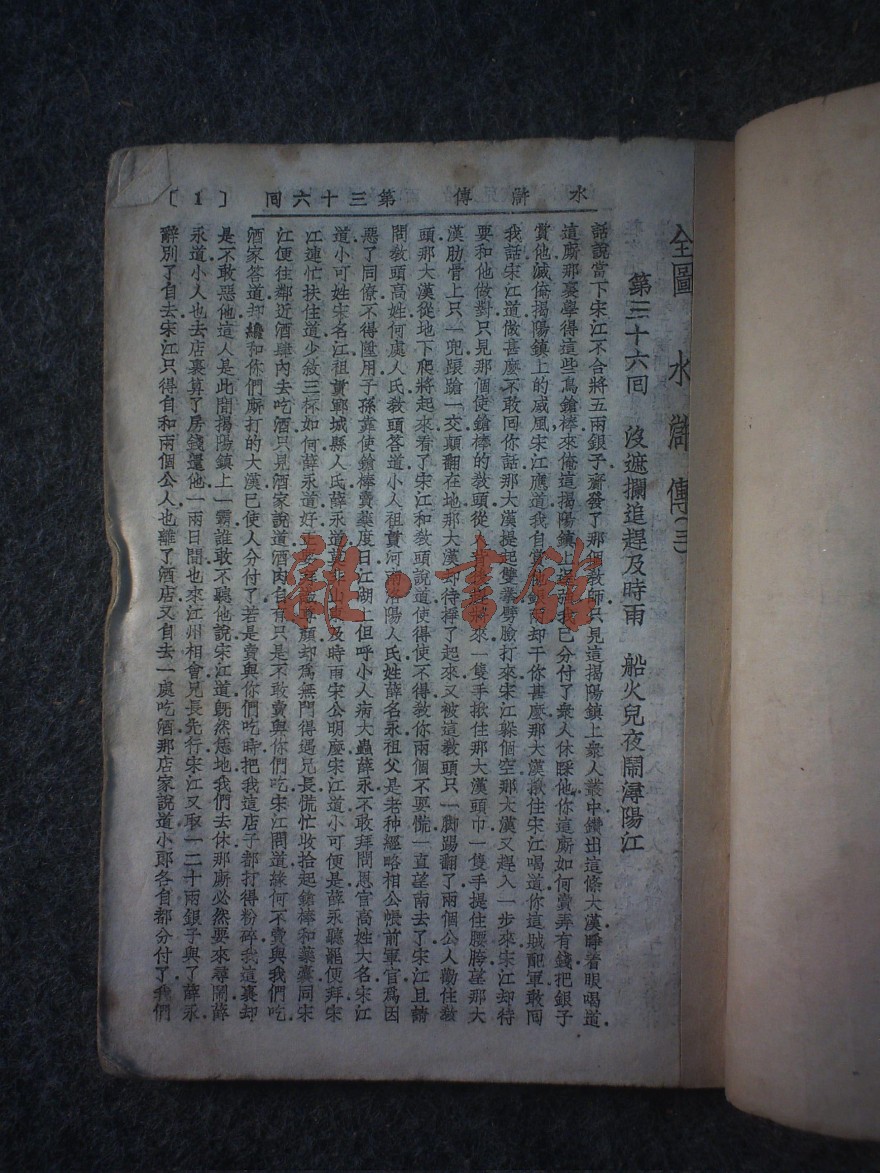 水滸傳　第三十六回　〔1〕
全圖　水滸傳(三)
第三十六回　沒遮攔追趕及時雨　船火兒夜鬧潯陽江
話說當下宋江不合將五兩銀子齎發了那個教師只見這揭陽鎮上衆人叢中鑽出這條大漢睜着眼喝道
這廝那裏學得這些鳥鎗棒來俺這揭陽鎮上逞強我已分付了衆人休睬他你這廝如何賣弄有錢把銀子
賞他滅俺揭陽鎮上的威風宋江應道我自賞他銀兩却干你甚麼那大漢揪住宋江喝道你這賊配軍敢回
我話宋江道做甚麼不敢回你話那大漢提起雙拳劈臉打來宋江躲個空那大漢又趕入一步來宋江却待
要和他做對只見那個使鎗棒的教頭從人背後趕將來一隻手揪住那大漢頭巾一隻手提住腰胯望那大
漢肋骨上只一兜踉蹌一交顛翻在地那大漢却待掙了起來又被這教頭只一脚踢翻了兩個公人勸住教
頭那大漢從地下爬將起來看了宋江和教頭說道使得使不得教你兩個不要慌一直望南去了宋江且請
問教頭高姓何處人氏教頭答道小人祖貫河南洛陽人氏姓薛名永祖父是老种經略相公帳前軍官爲因
惡了同僚不得陞用子孫靠使鎗棒賣藥度日江湖上但呼小人病大蟲薛永不敢拜問恩官高姓大名宋江
道小可姓宋名江祖貫鄆城縣人氏薛永道莫非山東及時雨宋公明麼宋江道小可便是薛永聽罷便拜宋
江連忙扶住道少敘三杯如何薛永道好正要拜識尊顏却爲無門得遇兄長慌忙收拾起鎗棒和藥囊同宋
江便往鄰近酒肆內去吃酒只見酒家說道酒肉自有只是不敢賣與你們吃宋江問道緣何不賣與我們吃
酒家答道却纔和你們廝打的大漢已使人分付了若是賣與你們吃時把我這店子都打得粉碎我這裏却
是不敢惡他這人是此間揭陽鎮上一霸誰敢不聽他說宋江道旣然恁地我們去休那廝必然要來尋鬧薛
永道小人也去店裏算了房錢還他一兩日間也來江州相會兄長先行宋江又取一二十兩銀子與了薛永
辭別了自去宋江只得自和兩個公人也離了酒店又自去一處吃酒那店家說道小郎各自都分付了我們
雜·書館